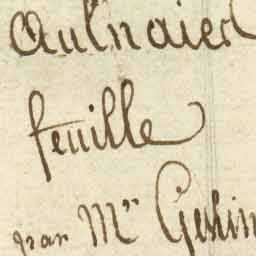 Aulnaies
feuille
par Mr Geslin